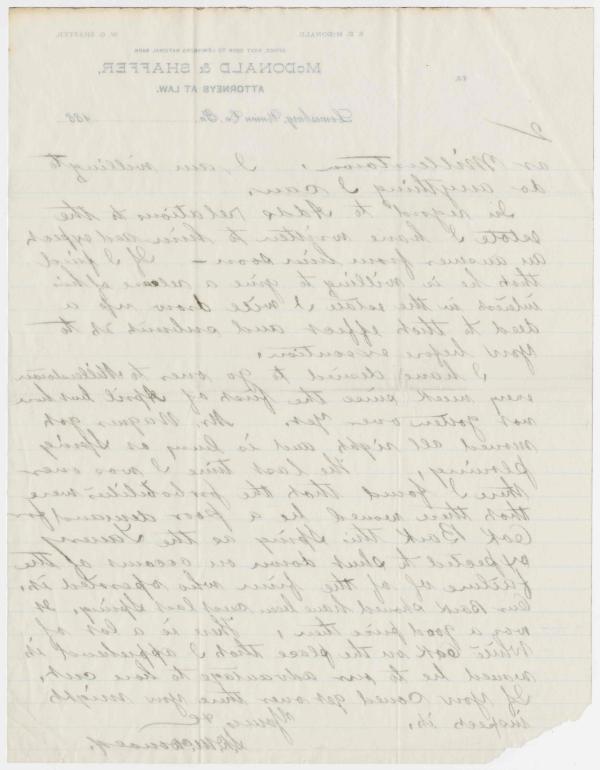 S. E. McDONALD. W. O. SHAFFER.
OFFICE, NEXT DOOR TO LEWISBURG NATIONAL BANK
McDONALD & SHAFFER,
ATTORNEYS AT LAW.
Lewisburg, Union Co. Pa. 188
2/
as Millerstown, I am willing to
do anything I can.
In regard to Adds relation to the
estate I have written to him and expect
an answer from him soon — If I find
that he is willing to give a release of his
interest in the estate I will draw up a
deed to that effect and submit it to
you before execution.
I have desired to go over to Millerstown
very much since the first of April but have
not gotten over yet. Mr. Wagner got
moved all right and is busy at Spring
plowing. The last time I was over
there I found that the probabilities were
that there would be a poor demand for
Oak Bark this Spring as the Tannery
expected to shut down on account of the
failure of the firm who operated it.
Our Bark should have been cut last Spring, It
was a good price then, There is a lot of
White oak on the place that I apprehend it
would be to our advantage to have cut.
If you could get over there you might
inspect it.
Yours &c